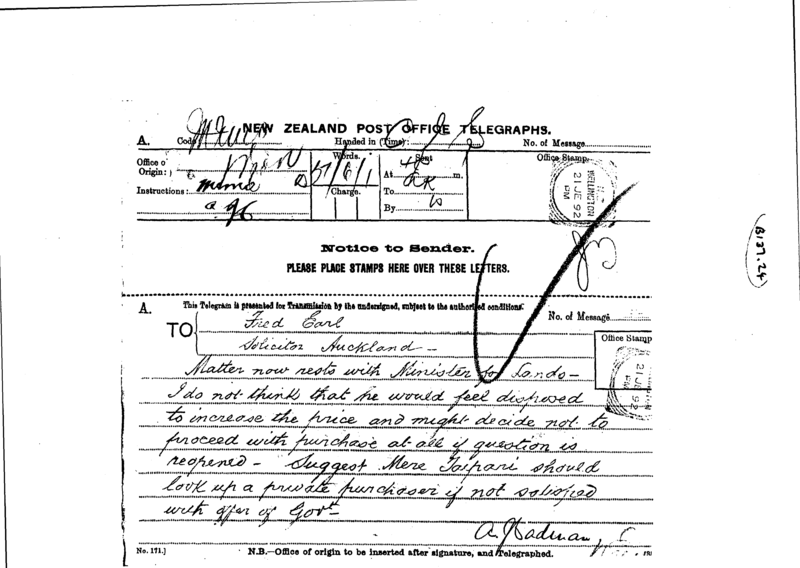 NEW ZEALAND POST OFFICE TELEGRAPHS.
A. Code Handed in (Time): No. of Message
Office of Origin: Words. Sent Office Stamp.
Instructions: At m.
Charge. To
By
WELLINGTON
21 JE 92
PM
Notice to Sender.
PLEASE PLACE STAMPS HERE OVER THESE LETTERS.
B137.24
A. This Telegram is presented for Transmission by the undersigned, subject to the authorised conditions. No. of Message
TO Fred Earl
Solicitor Auckland -
Office Stamp
21 JE 92
PM
Matter now rests with Minister for Lands -
I do not think that he would feel disposed
to increase the price and might decide not to
proceed with purchase at all if question is
reopened - Suggest Mere Taipari should
look up a private purchaser if not satisfied
with offer of Govt -
A. J. Cadman
No. 171.] N.B.—Office of origin to be inserted after signature, and Telegraphed.